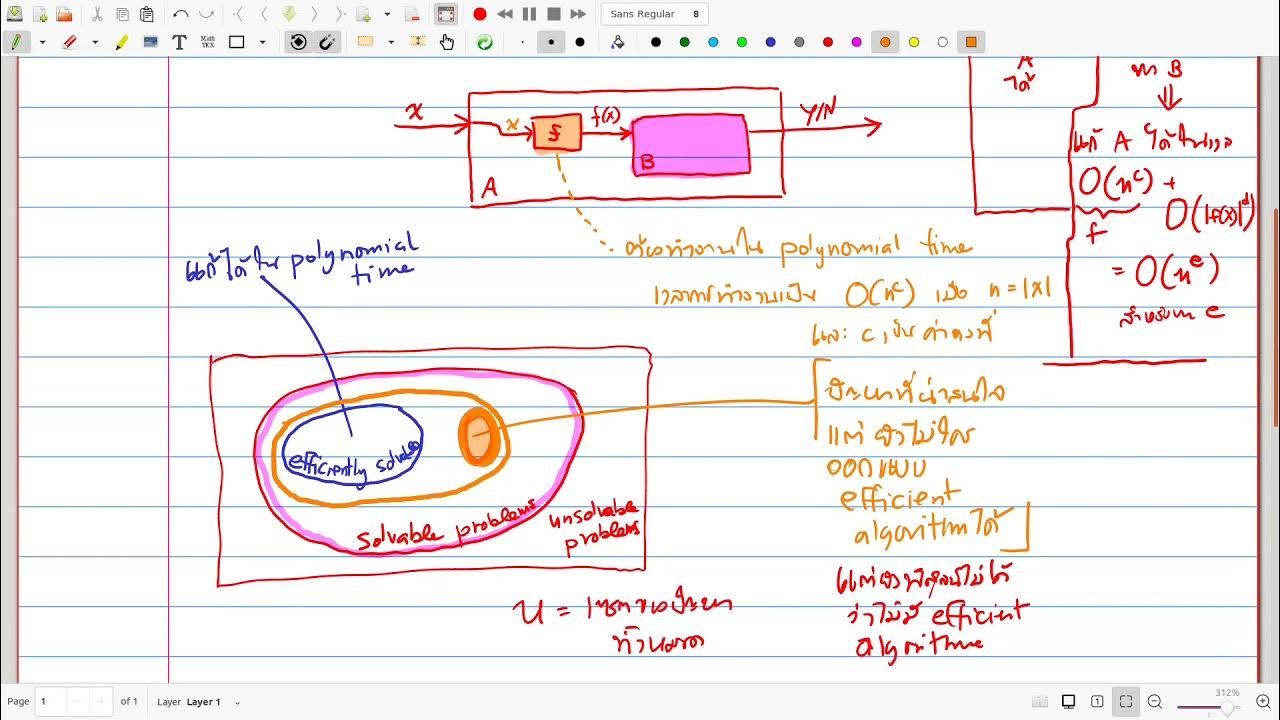 Sans Regular 8
T Math TEX
x
x
f
f(x)
B
A
Y/N
A
ได้
B
⇓
แก้ A ได้ในเวลา
O(n^c) +
f
O(|f(x)|^d)
= O(n^e)
e
แก้ได้ใน polynomial
time
ต้องทำงานใน polynomial time
เวลาการทำงานเป็น O(n^c) เมื่อ n = |x|
และ c เป็น ค่าคงที่
efficiently
solvable problems
unsolvable
problems
ปัญหาที่น่าสนใจ
แต่ ยังไม่ใคร
ออกแบบ
efficient
algorithm ได้
แต่ยังพิสูจน์ไม่ได้
ว่าไม่มี efficient
algorithm
U = เซตของปัญหา
ทั้งหมด
Page 1 of 1 Layer Layer 1
1
312%